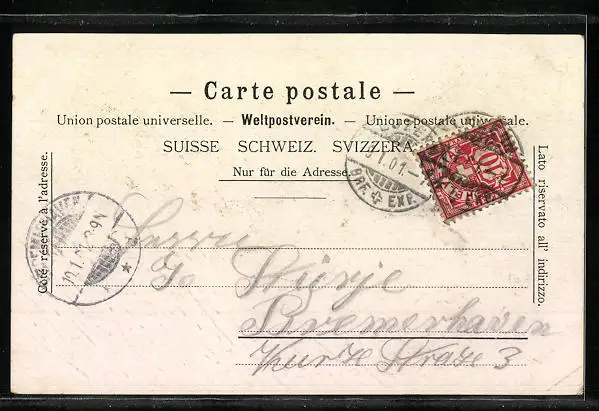 — Carte postale —
Union postale universelle. — Weltpostverein. — Unione postale universale.
SUISSE SCHWEIZ. SVIZZERA
Nur für die Adresse.
Côté réservé à l'adresse.
Lato riservato all' indirizzo.
I.01.-
BRF. EXP.
10
10.1.
Herrn
Stürje
Bremerhaven
Kurze Straße 3